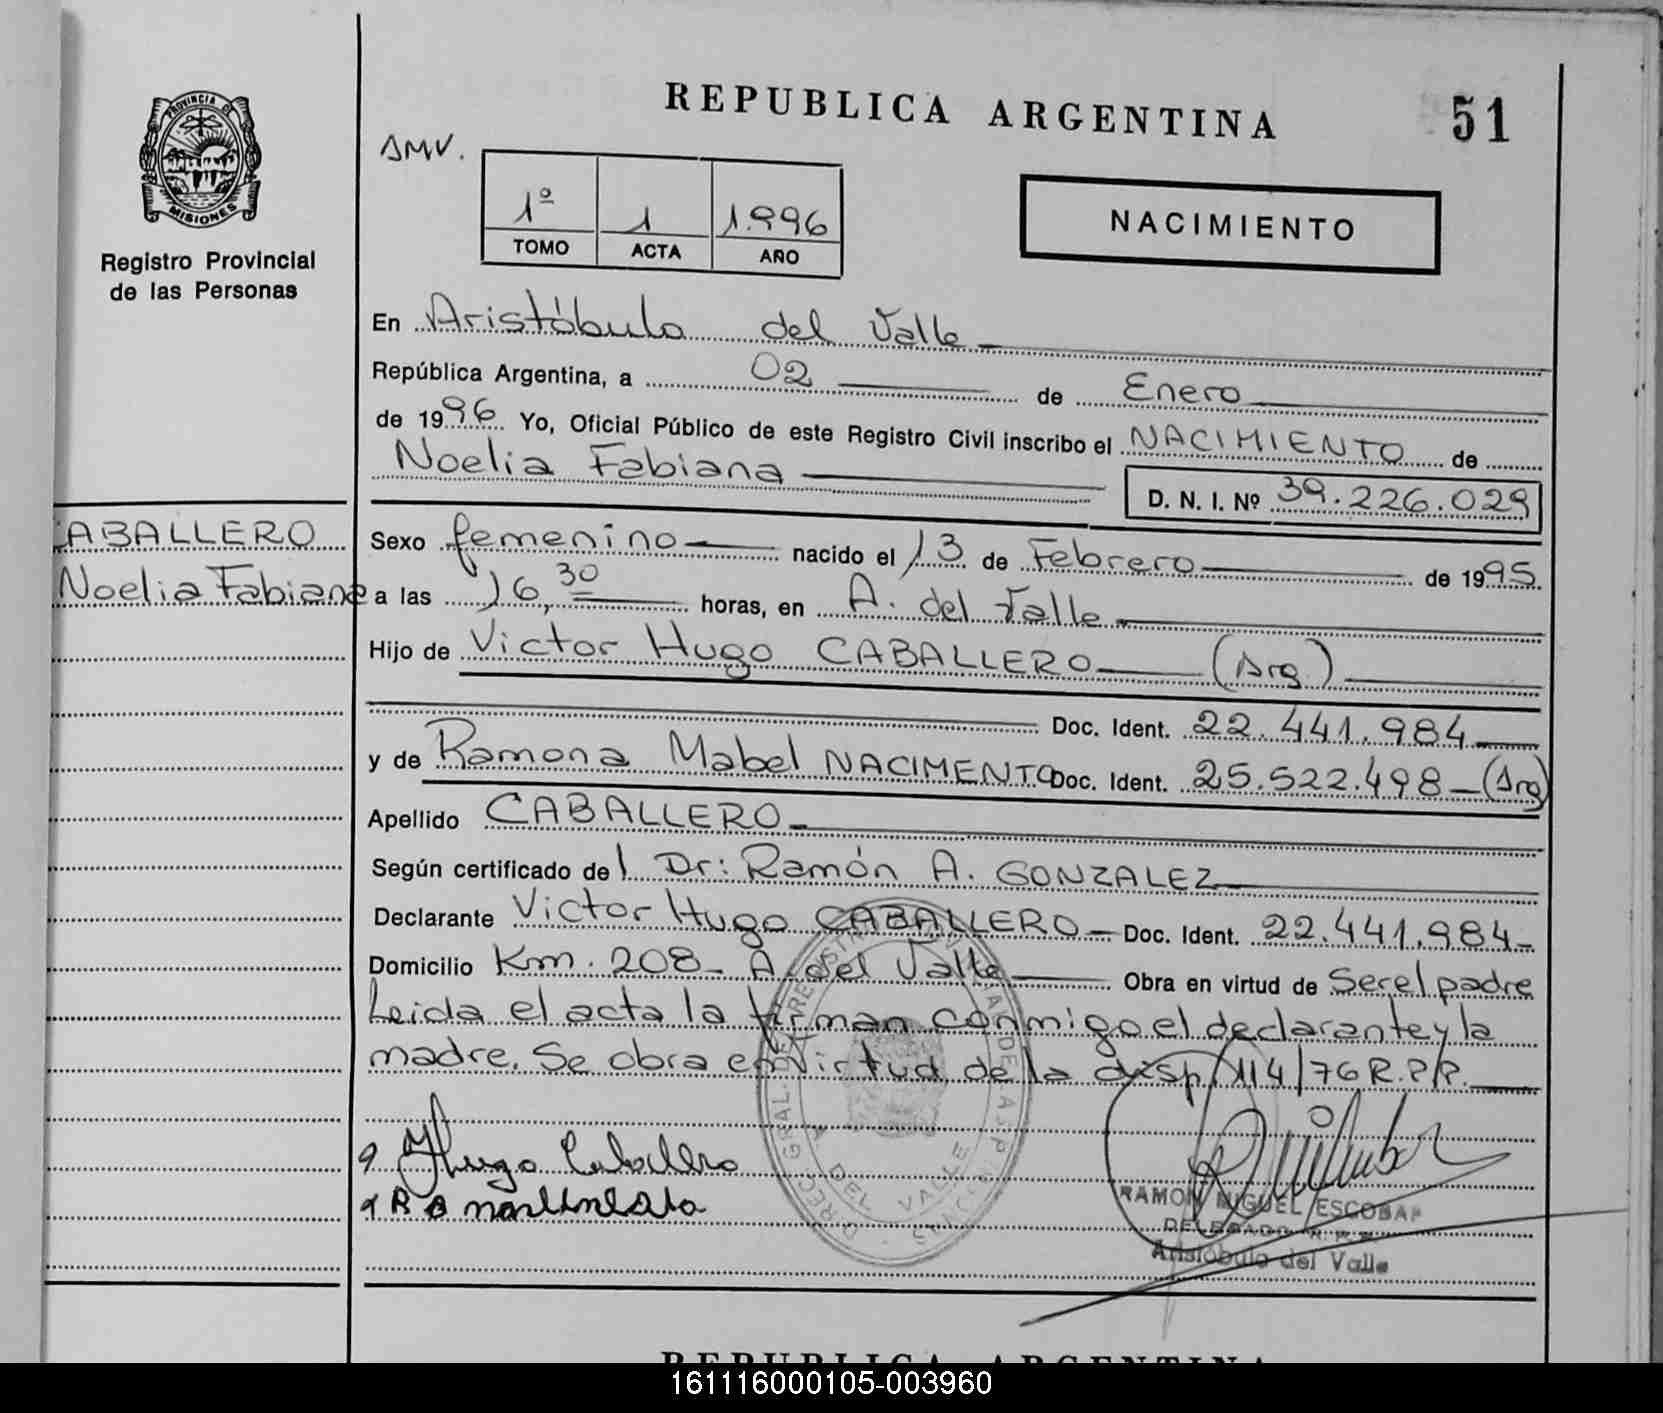 REPUBLICA ARGENTINA
51
PROVINCIA DE
MISIONES
Registro Provincial
de las Personas
AMV.
1º 1 1.996
TOMO ACTA AÑO
NACIMIENTO
En Aristóbulo del Valle
República Argentina, a 02 de Enero
de 1996. Yo, Oficial Público de este Registro Civil inscribo el NACIMIENTO de
Noelia Fabiana
D. N. I. Nº 39.226.029
ABALLERO
Noelia Fabiana
Sexo femenino nacido el 13 de Febrero de 1995.
a las 16,30 horas, en A. del Valle
Hijo de Victor Hugo CABALLERO (Arg.)
Doc. Ident. 22.441.984
y de Ramona Mabel NACIMENTO Doc. Ident. 25.522.498 (Arg)
Apellido CABALLERO
Según certificado del Dr: Ramón A. GONZALEZ
Declarante Victor Hugo CABALLERO Doc. Ident. 22.441.984
Domicilio Km. 208 - A. del Valle Obra en virtud de Ser el padre
Leida el acta la firman conmigo el declarante y la
madre. Se obra en virtud de la disp. 114/76 R.P.P.
Hugo Caballero
RAMON MIGUEL ESCOBAR
DELEGADO R.P.P.
Aristóbulo del Valle
DEL VALLE
REPUBLICA ARGENTINA
161116000105-003960